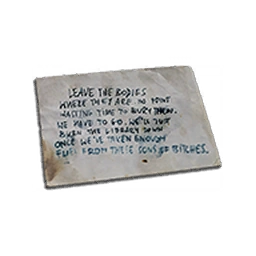 LEAVE THE BODIES
WHERE THEY ARE. NO POINT
WASTING TIME TO BURY THEM.
WE HAVE TO GO. WE'LL JUST
BURN THE LIBRARY DOWN
ONCE WE'VE TAKEN ENOUGH
FUEL FROM THESE SONS OF BITCHES.